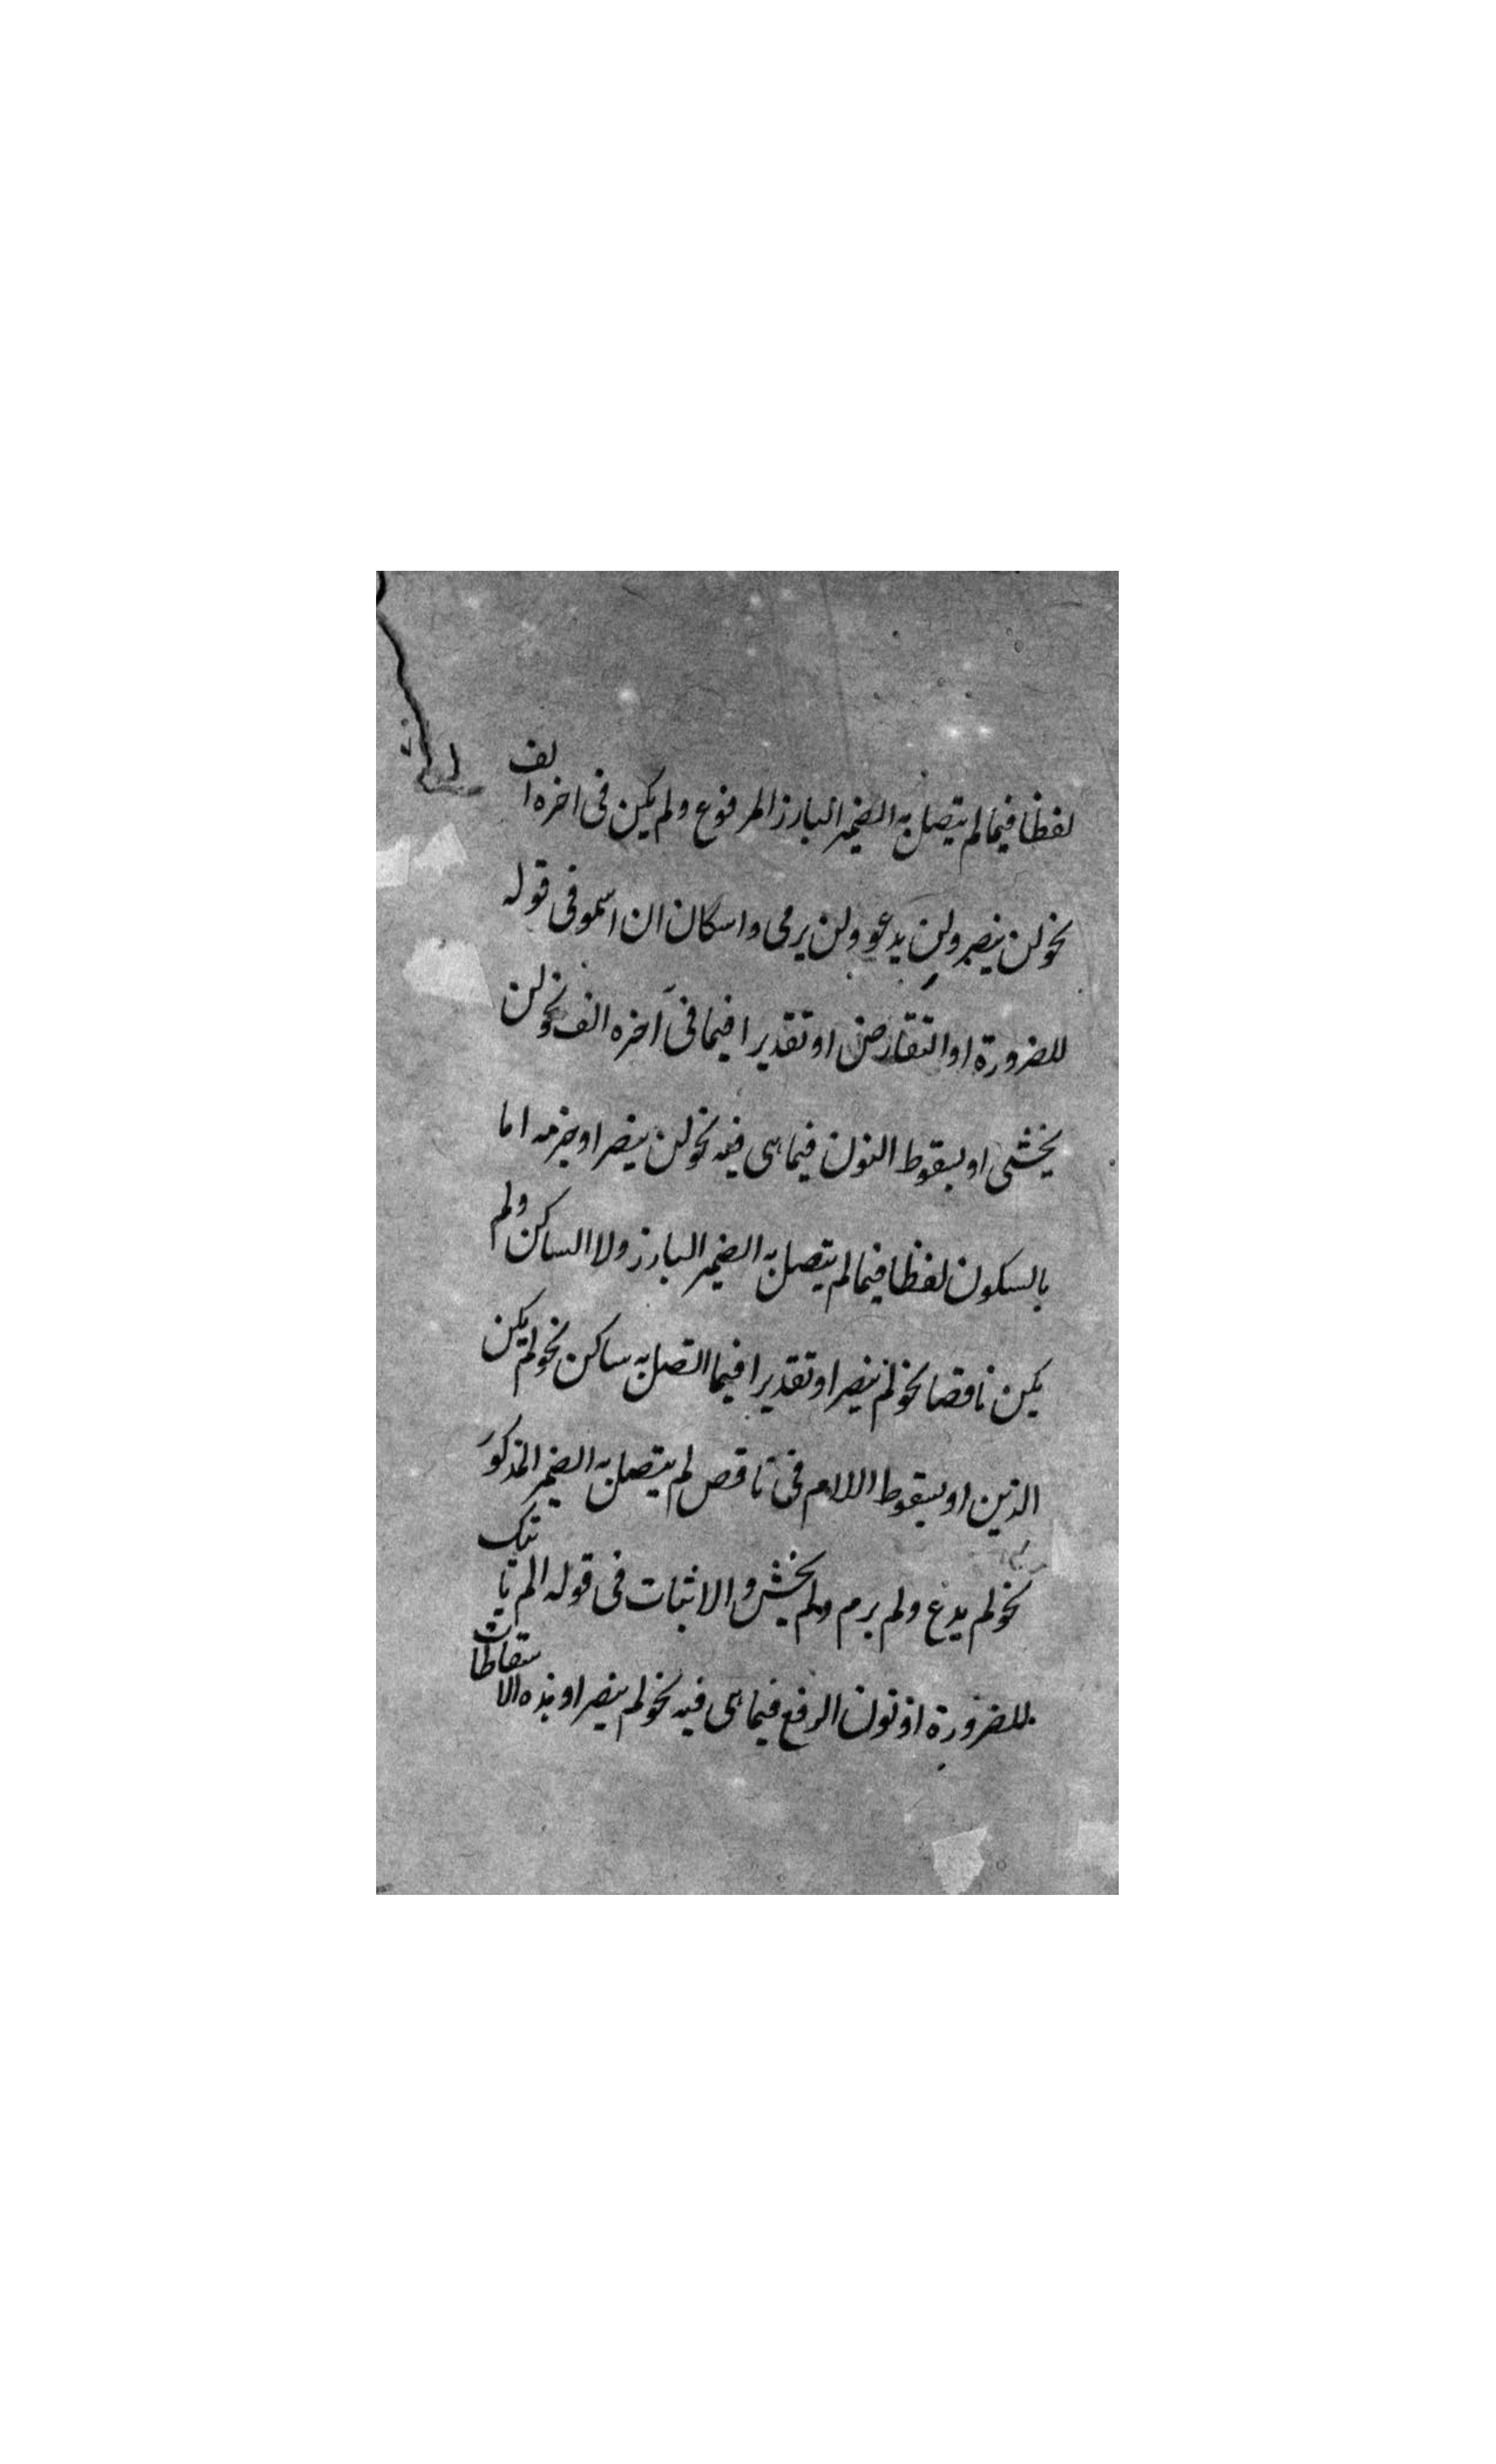 لفظا فيما لم يتصل به الضمير البارز المرفوع ولم يكن فى اخره الف
نحو لن ينصر ولن يدعو ولن يرمى واسكان ان اسمو فى قوله
للضرورة او التقارض او تقديرا فيما فى آخره الف نحو لن
يخشى او بسقوط النون فيما هى فيه نحو لن ينصرا وجزمه اما
بالسكون لفظا فيما لم يتصل به الضمير البارز ولا الساكن ولم
يكن ناقصا نحو لم ينصر او تقديرا فيما اتصل به ساكن نحو لم يكن
الذين او بسقوط اللام فى ناقص لم يتصل به الضمير المذكور
نحو لم يدع ولم يرم ولم يخش والاثبات فى قوله الم يا تيك
للضرورة او نون الرفع فيما هى فيه نحو لم ينصرا وهذه الا سقاطات